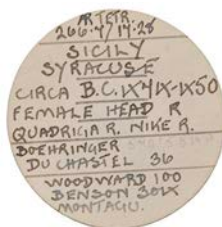 AR TETR.
266.7/17.28
SICILY
SYRACUSE
CIRCA B.C.
FEMALE HEAD R
QUADRIGA R. NIKE R.
BOEHRINGER
DU CHASTEL 36
WOODWARD 100
BENSON
MONTAGU.